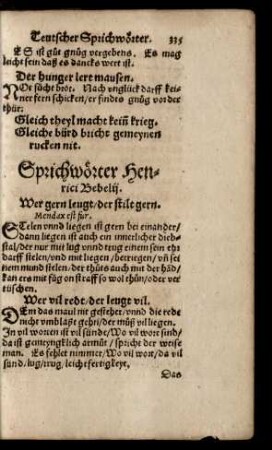 Teutscher Sprichwörter. 335
ES ist gůt gnůg vergebens. Es mag
leicht sein daß es dancks wert ist.
Der hunger lert mausen.
NOt sůcht brot. Nach vnglück darff kei-
ner fern schicken / er findts gnůg vor der
thür.
Gleich theyl macht kein krieg.
Gleiche bürd bricht gemeynen
rucken nit.
Sprichwörter Hen-
rici Bebelij.
Wer gern leugt / der stilt gern.
Mendax est fur.
STelen vnnd liegen ist gern bei einander /
dann liegen ist auch ein innerlicher dieb-
stal / der nur mit lug vnnd trug einem sein ehr
darff stelen / vnd mit liegen / betriegen / vñ sei
nem mund stelen / der thůts auch mit der häd/
kan ers mit fůg on straff so wol thůn / oder ver
tüschen.
Wer vil redt / der leugt vil.
DEm das maul nit gestehet / vnnd die rede
nicht vmblaßt gehn / der můß vil liegen.
In vil worten ist vil sünde / Wo vil wort sind /
da ist gemeyngklich armůt / spricht der weise
man. Es fehlet nimmer / Wo vil wort / da vil
sünd / lug / trug / leichtfertigkeyt,
Das